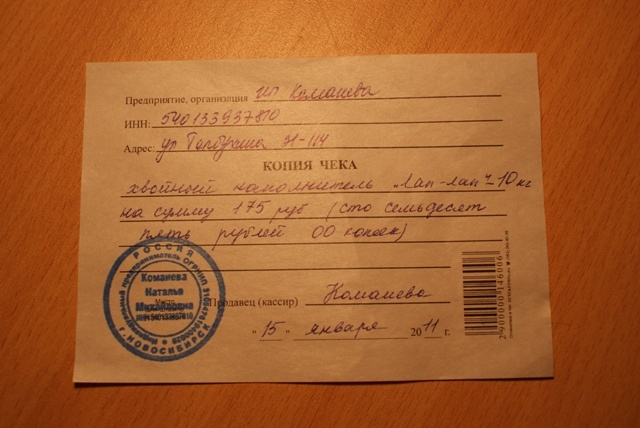 Предприятие, организация ИП Команева
ИНН: 540133937810
Адрес: ул
КОПИЯ ЧЕКА
хвойный наполнитель „Лап-лап" - 10 кг
на сумму 175 руб (сто семьдесят
пять рублей 00 копеек)
Продавец (кассир) Команева
"15" января 2011 г.
РОССИЯ
Индивидуальный предприниматель ОГРНИП
Команева
Наталья
Михайловна
г. НОВОСИБИРСК
2 910000 146006